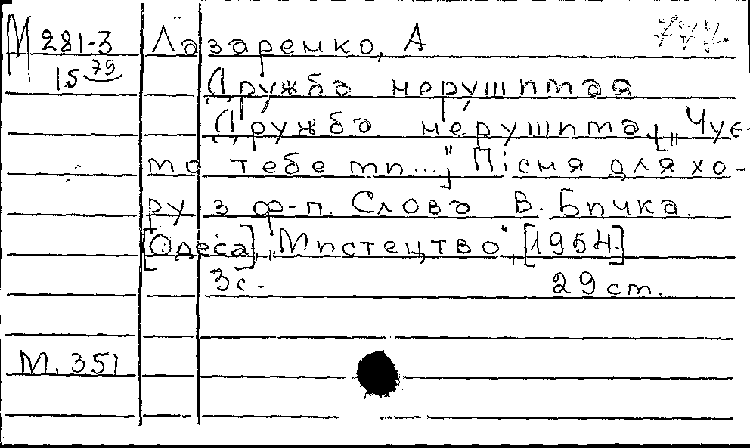 М 281-3 Лазаренко, А 777.
15 79
Дружба нерушимая
Дружба нерушима. [„Чує-
мо тебе ми...“] Пісня для хо-
ру з ф-п. Слова В. Бичка
[Одеса], „Мистецтво“, [1954.]
3с. 29 см.
М. 351